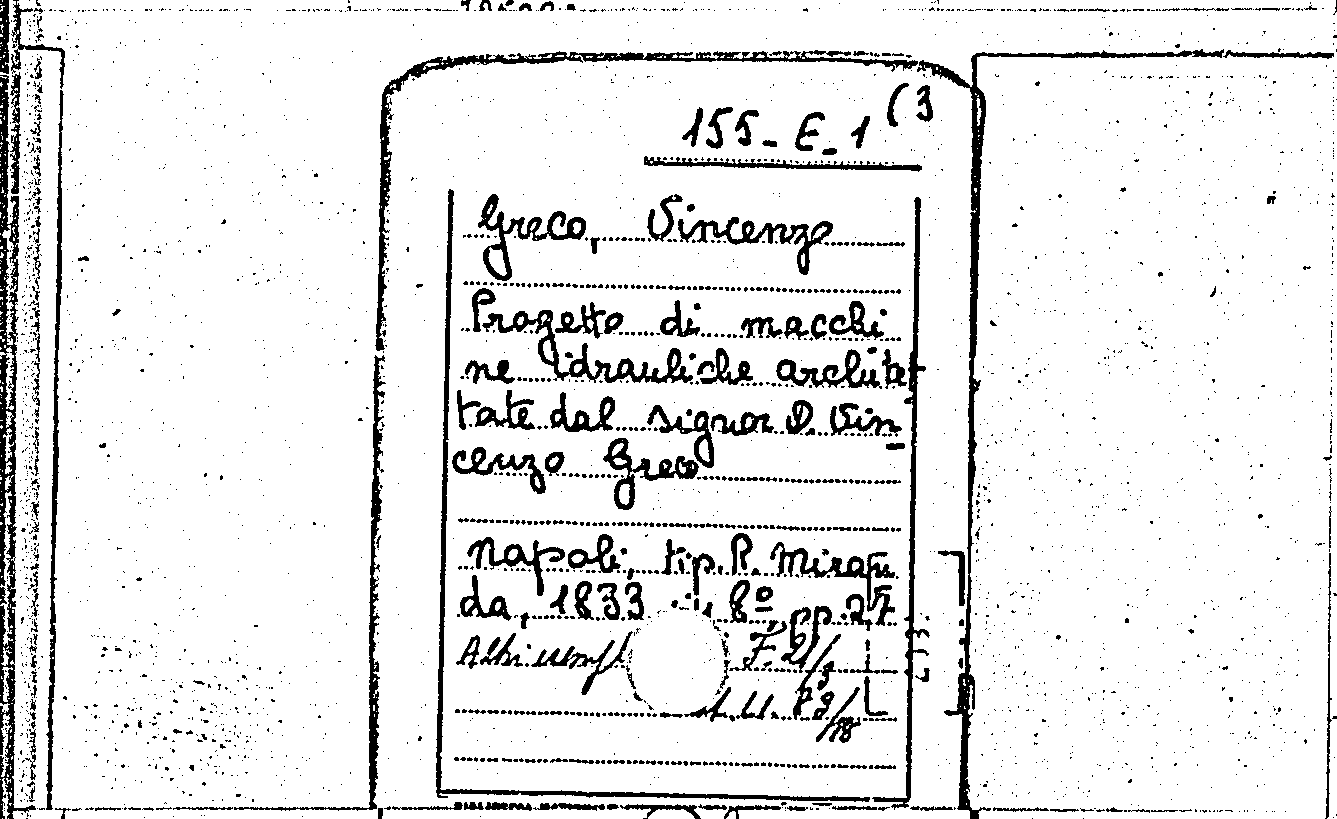 155-E-1 (3
Greco, Vincenzo
Progetto di macchi
ne idrauliche architet
tate dal signor D. Vin
cenzo Greco
Napoli, tip. R. Miran
da, 1833 8º, pp. 27
Altri esempl